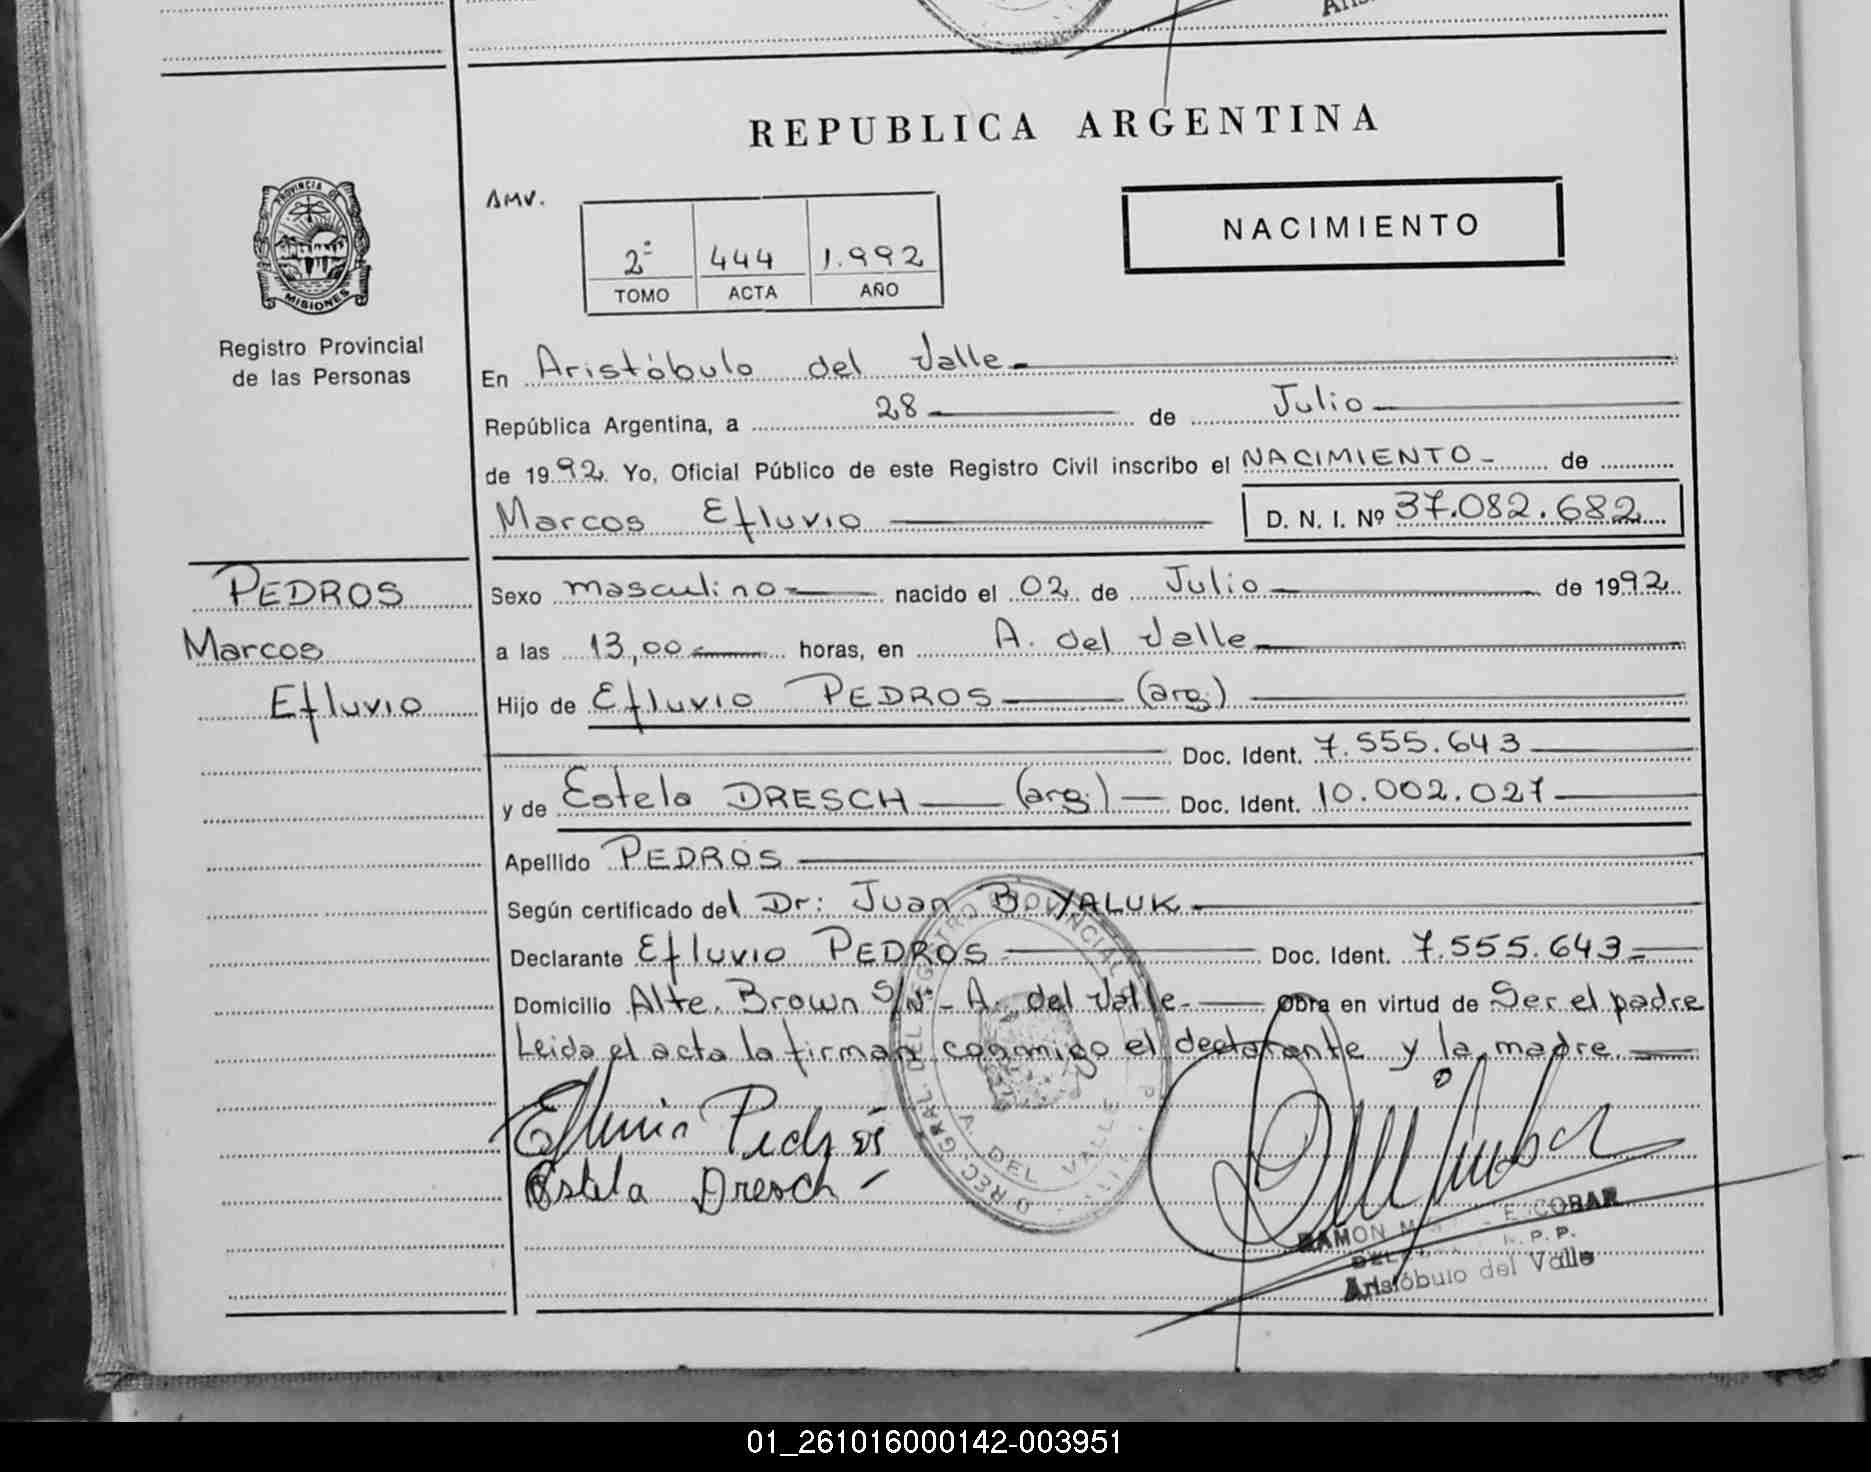 REPUBLICA ARGENTINA
PROVINCIA DE
MISIONES
Registro Provincial
de las Personas
AMV.
2º 444 1.992
TOMO ACTA AÑO
NACIMIENTO
En Aristóbulo del Valle.
República Argentina, a 28 de Julio
de 1992. Yo, Oficial Público de este Registro Civil inscribo el NACIMIENTO - de
Marcos Efluvio D. N. I. Nº 37.082.682
PEDROS
Marcos
Efluvio
Sexo masculino nacido el 02 de Julio de 1992
a las 13,00 horas, en A. del Valle
Hijo de Efluvio PEDROS (arg.)
Doc. Ident. 7.555.643
y de Estela DRESCH (arg.) Doc. Ident. 10.002.027
Apellido PEDROS
Según certificado del Dr: Juan B. YALUK
Declarante Efluvio PEDROS Doc. Ident. 7.555.643
Domicilio Alte. Brown S/Nº - A. del Valle. Obra en virtud de Ser el padre
Leida el acta la firman conmigo el declarante y la madre.
Efluvio Pedros
Estela Dresch
A. DEL VALLE
RAMON ESCOBAR
R. P. P.
Aristóbulo del Valle
01_261016000142-003951